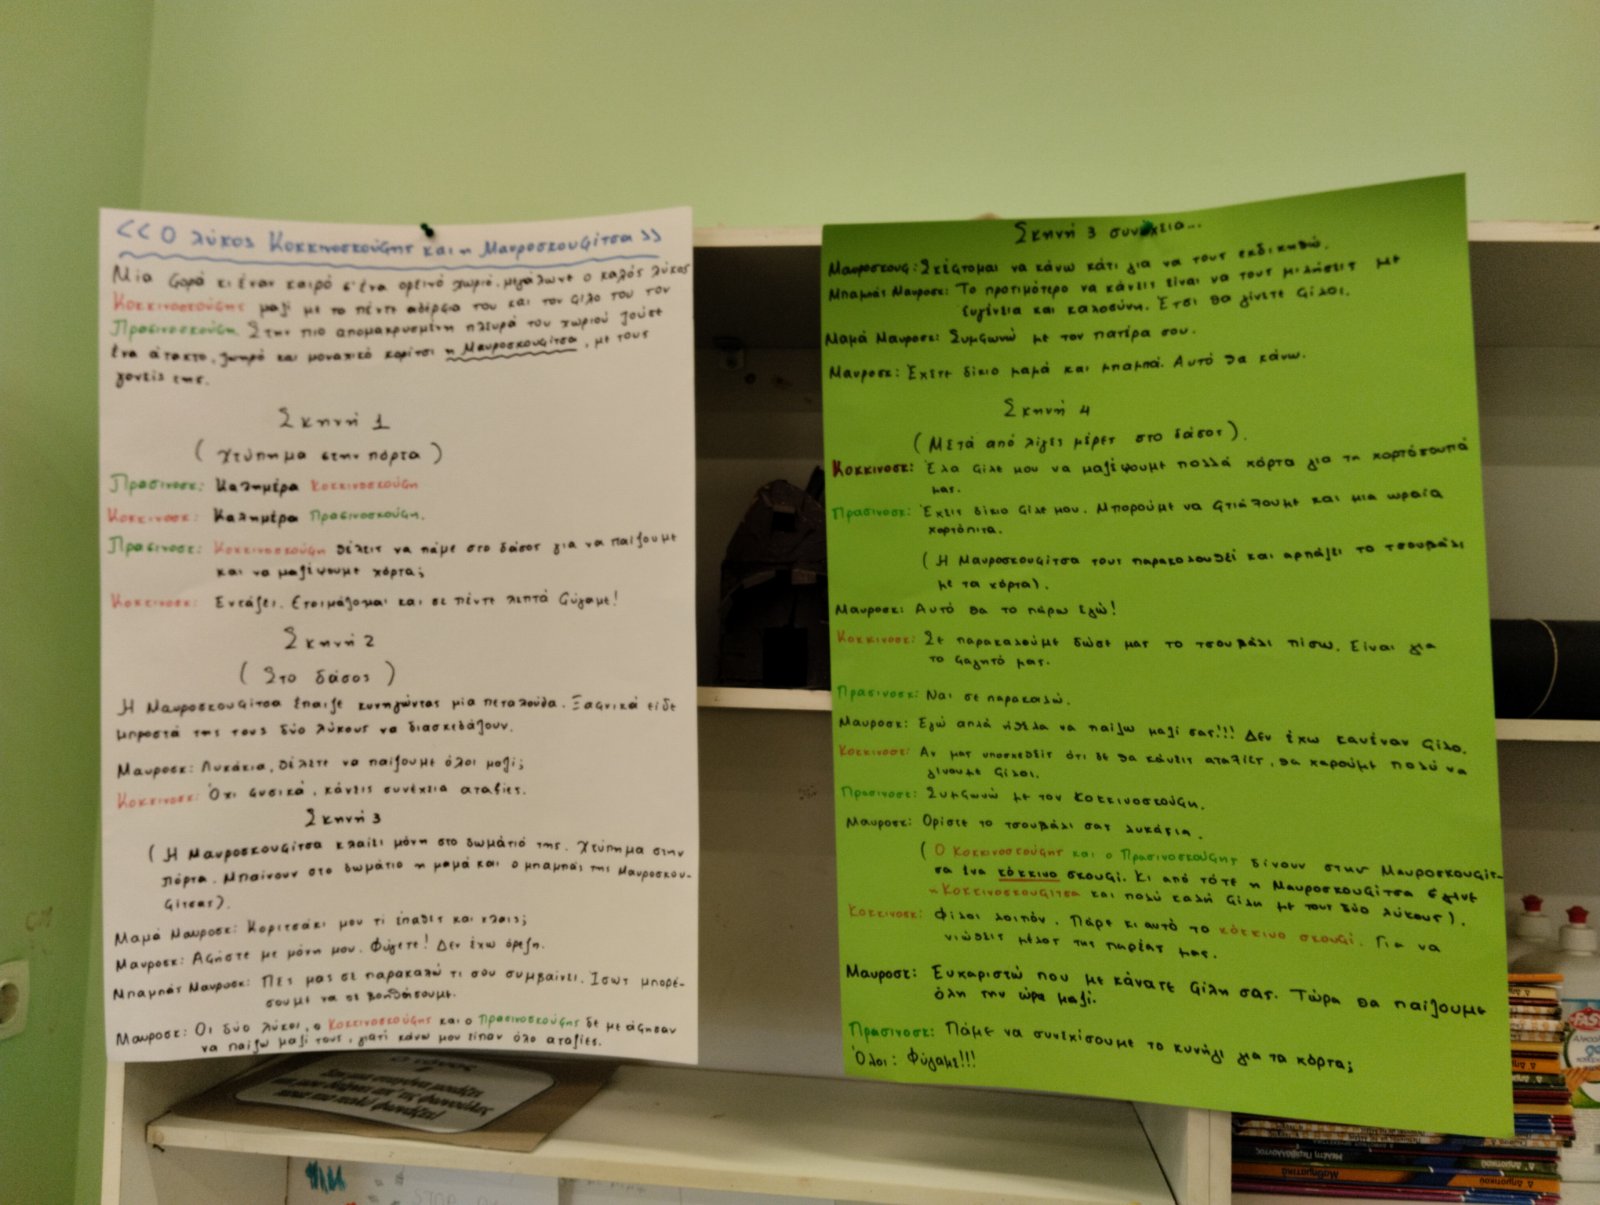 << Ο λύκος Κοκκινοσκούφης και η Μαυροσκουφίτσα >>
Μία φορά κι έναν καιρό σ'ένα ορεινό χωριό, μεγάλωνε ο καλός λύκος
Κοκκινοσκούφης μαζί με τα πέντε αδέρφια του και τον φίλο του τον
Πρασινοσκούφη. Στην πιο απομακρυσμένη πλευρά του χωριού ζούσε
ένα άτακτο, ζωηρό και μοναχικό κορίτσι η Μαυροσκουφίτσα, με τους
γονείς της.
Σκηνή 1
( χτύπημα στην πόρτα )
Πρασινοσκ: Καλημέρα Κοκκινοσκούφη
Κοκκινοσκ: Καλημέρα Πρασινοσκούφη.
Πρασινοσκ: Κοκκινοσκούφη θέλεις να πάμε στο δάσος για να παίξουμε
και να μαζέψουμε χόρτα;
Κοκκινοσκ: Εντάξει. Ετοιμάζομαι και σε πέντε λεπτά φύγαμε!
Σκηνή 2
( Στο δάσος )
Η Μαυροσκουφίτσα έπαιζε κυνηγώντας μία πεταλούδα. Ξαφνικά είδε
μπροστά της τους δύο λύκους να διασκεδάζουν.
Μαυροσκ: Λυκάκια, θέλετε να παίξουμε όλοι μαζί;
Κοκκινοσκ: Όχι φυσικά, κάνεις συνέχεια αταξίες.
Σκηνή 3
( Η Μαυροσκουφίτσα κλαίει μόνη στο δωμάτιό της. Χτύπημα στην
πόρτα. Μπαίνουν στο δωμάτιο η μαμά και ο μπαμπάς της Μαυροσκου-
φίτσας).
Μαμά Μαυροσκ: Κοριτσάκι μου τί έπαθες και κλαις;
Μαυροσκ: Αφήστε με μόνη μου. Φύγετε! Δεν έχω όρεξη.
Μπαμπάς Μαυροσκ: Πες μας σε παρακαλώ τι σου συμβαίνει. Ίσως μπορέ-
σουμε να σε βοηθήσουμε.
Μαυροσκ: Οι δύο λύκοι, ο Κοκκινοσκούφης και ο Πρασινοσκούφης δε με άφησαν
να παίξω μαζί τους, γιατί κάνω μου είπαν όλο αταξίες.
Σκηνή 3 συνέχεια...
Μαυροσκουφ: Σκέφτομαι να κάνω κάτι για να τους εκδικηθώ.
Μπαμπάς Μαυροσκ: Το προτιμότερο να κάνεις είναι να τους μιλήσεις με
ευγένεια και καλοσύνη. Έτσι θα γίνετε φίλοι.
Μαμά Μαυροσκ: Συμφωνώ με τον πατέρα σου.
Μαυροσκ: Έχετε δίκιο μαμά και μπαμπά. Αυτό θα κάνω.
Σκηνή 4
( Μετά από λίγες μέρες στο δάσος ).
Κοκκινοσκ: Έλα φίλε μου να μαζέψουμε πολλά χόρτα για τη χορτόσουπά
μας.
Πρασινοσκ: Έχεις δίκιο φίλε μου. Μπορούμε να φτιάξουμε και μια ωραία
χορτόπιτα.
( Η Μαυροσκουφίτσα τους παρακολουθεί και αρπάζει το τσουβάλι
με τα χόρτα).
Μαυροσκ: Αυτό θα το πάρω εγώ!
Κοκκινοσκ: Σε παρακαλούμε δώσε μας το τσουβάλι πίσω. Είναι για
το φαγητό μας.
Πρασινοσκ: Ναι σε παρακαλώ.
Μαυροσκ: Εγώ απλά ήθελα να παίξω μαζί σας!!! Δεν έχω κανέναν φίλο.
Κοκκινοσκ: Αν μας υποσχεθείς ότι δε θα κάνεις αταξίες, θα χαρούμε πολύ να
γίνουμε φίλοι.
Πρασινοσκ: Συμφωνώ με τον Κοκκινοσκούφη.
Μαυροσκ: Ορίστε το τσουβάλι σας λυκάκια.
( Ο Κοκκινοσκούφης και ο Πρασινοσκούφης δίνουν στην Μαυροσκουφίτ-
σα ένα κόκκινο σκουφί. Κι από τότε η Μαυροσκουφίτσα έγινε
η Κοκκινοσκουφίτσα και πολύ καλή φίλη με τους δύο λύκους).
Κοκκινοσκ: Φίλοι λοιπόν. Πάρε κι αυτό το κόκκινο σκουφί. Για να
νιώθεις μέλος της παρέας μας.
Μαυροσκ: Ευχαριστώ που με κάνατε φίλη σας. Τώρα θα παίζουμε
όλη την ώρα μαζί.
Πρασινοσκ: Πάμε να συνεχίσουμε το κυνήγι για τα χόρτα;
Όλοι: Φύγαμε!!!
Μελέτη Περιβάλλοντος
Μαθηματικά
Δ' Δημοτικού